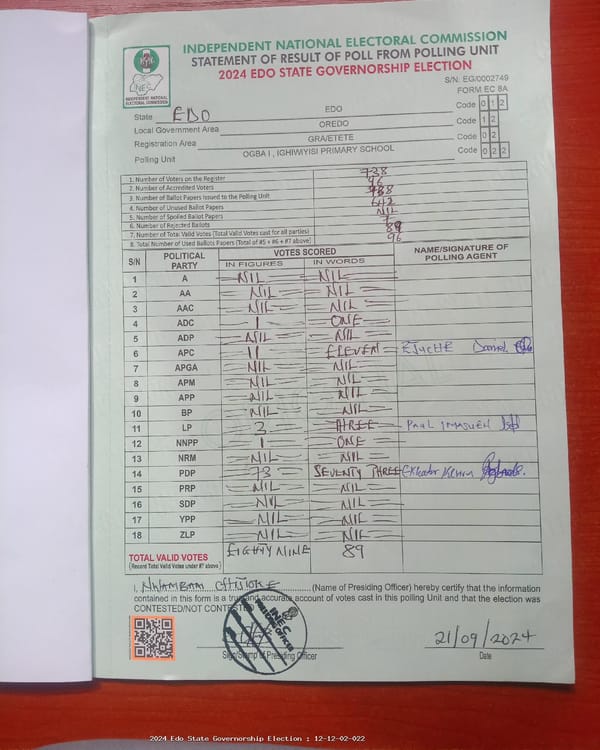 INDEPENDENT NATIONAL ELECTORAL COMMISSION
STATEMENT OF RESULT OF POLL FROM POLLING UNIT
2024 EDO STATE GOVERNORSHIP ELECTION
INEC
INDEPENDENT NATIONAL ELECTORAL COMMISSION
S/N: EG/0002749
FORM EC 8A
State EDO EDO Code 0 1 2
Local Government Area OREDO Code 1 2
Registration Area GRA/ETETE Code 0 2
Polling Unit OGBA I, IGHIWIYISI PRIMARY SCHOOL Code 0 2 2
1. Number of Voters on the Register 738
2. Number of Accredited Voters 96
3. Number of Ballot Papers Issued to the Polling Unit 738
4. Number of Unused Ballot Papers 642
5. Number of Spoiled Ballot Papers NIL
6. Number of Rejected Ballots 7
7. Number of Total Valid Votes (Total Valid Votes cast for all parties) 89
8. Total Number of Used Ballots Papers (Total of #5 + #6 + #7 above) 96
S/N POLITICAL PARTY VOTES SCORED NAME/SIGNATURE OF POLLING AGENT
IN FIGURES IN WORDS
1 A NIL NIL
2 AA NIL NIL
3 AAC NIL NIL
4 ADC 1 ONE
5 ADP NIL NIL
6 APC 11 ELEVEN
7 APGA NIL NIL
8 APM NIL NIL
9 APP NIL NIL
10 BP NIL NIL
11 LP 3 THREE PAUL
12 NNPP 1 ONE
13 NRM NIL NIL
14 PDP 73 SEVENTY THREE
15 PRP NIL NIL
16 SDP NIL NIL
17 YPP NIL NIL
18 ZLP NIL NIL
TOTAL VALID VOTES EIGHTY NINE 89
(Record Total Valid Votes under #7 above)
I, (Name of Presiding Officer) hereby certify that the information
contained in this form is a true and accurate account of votes cast in this polling Unit and that the election was
CONTESTED/NOT CONTESTED
INEC
Sign/Stamp of Presiding Officer
21/09/2024
Date
2024 Edo State Governorship Election : 12-12-02-022